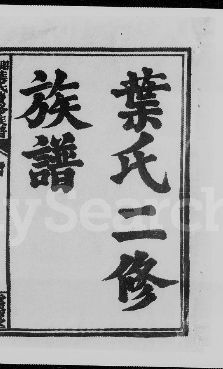 葉氏二修
族譜